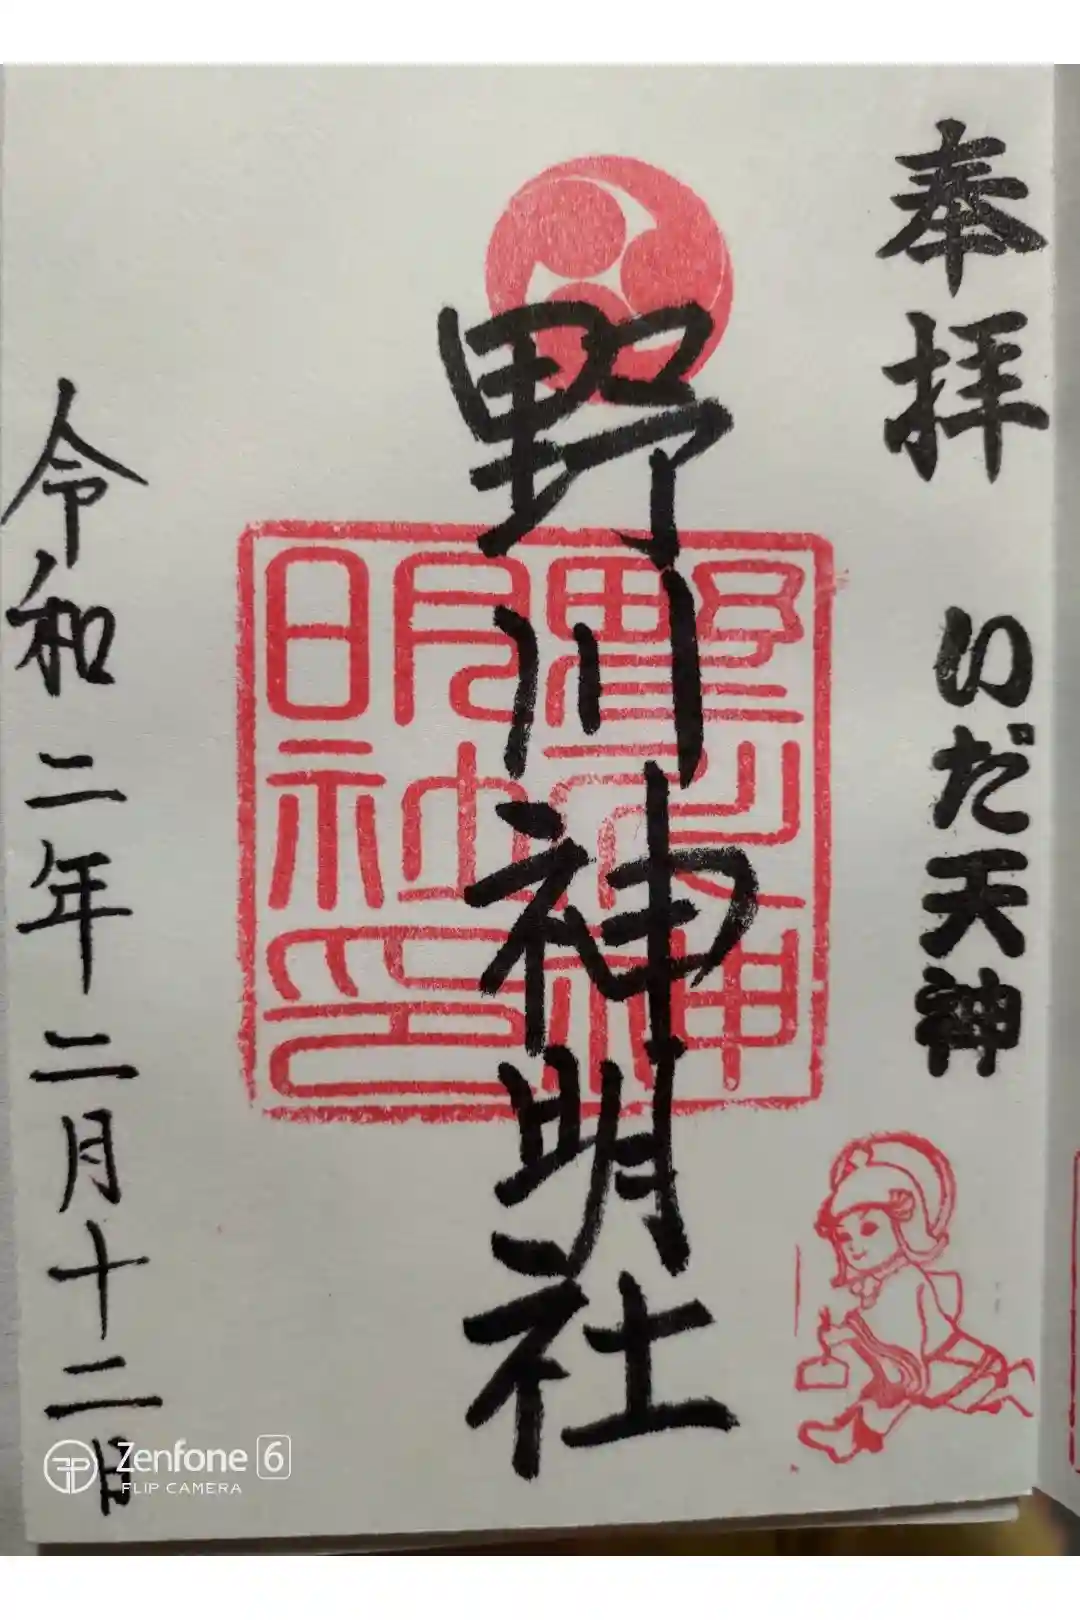 奉拝
いだ天神
野川神明社
野川神明社印
令和二年二月十二日
Zenfone 6
FLIP CAMERA